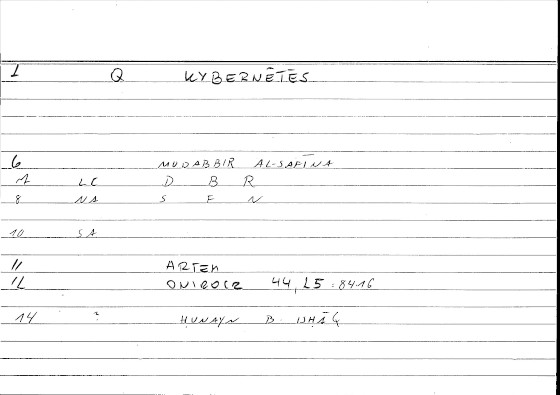 1 Q KYBERNĒTĒS
6 MUDABBIR AL-SAFĪNA
7 LC D B R
8 NA S F N
10 SA
11 ARTEM
12 ONIROCR 44, 25 : 8416
14 ? ḤUNAYN B. ISḤĀQ